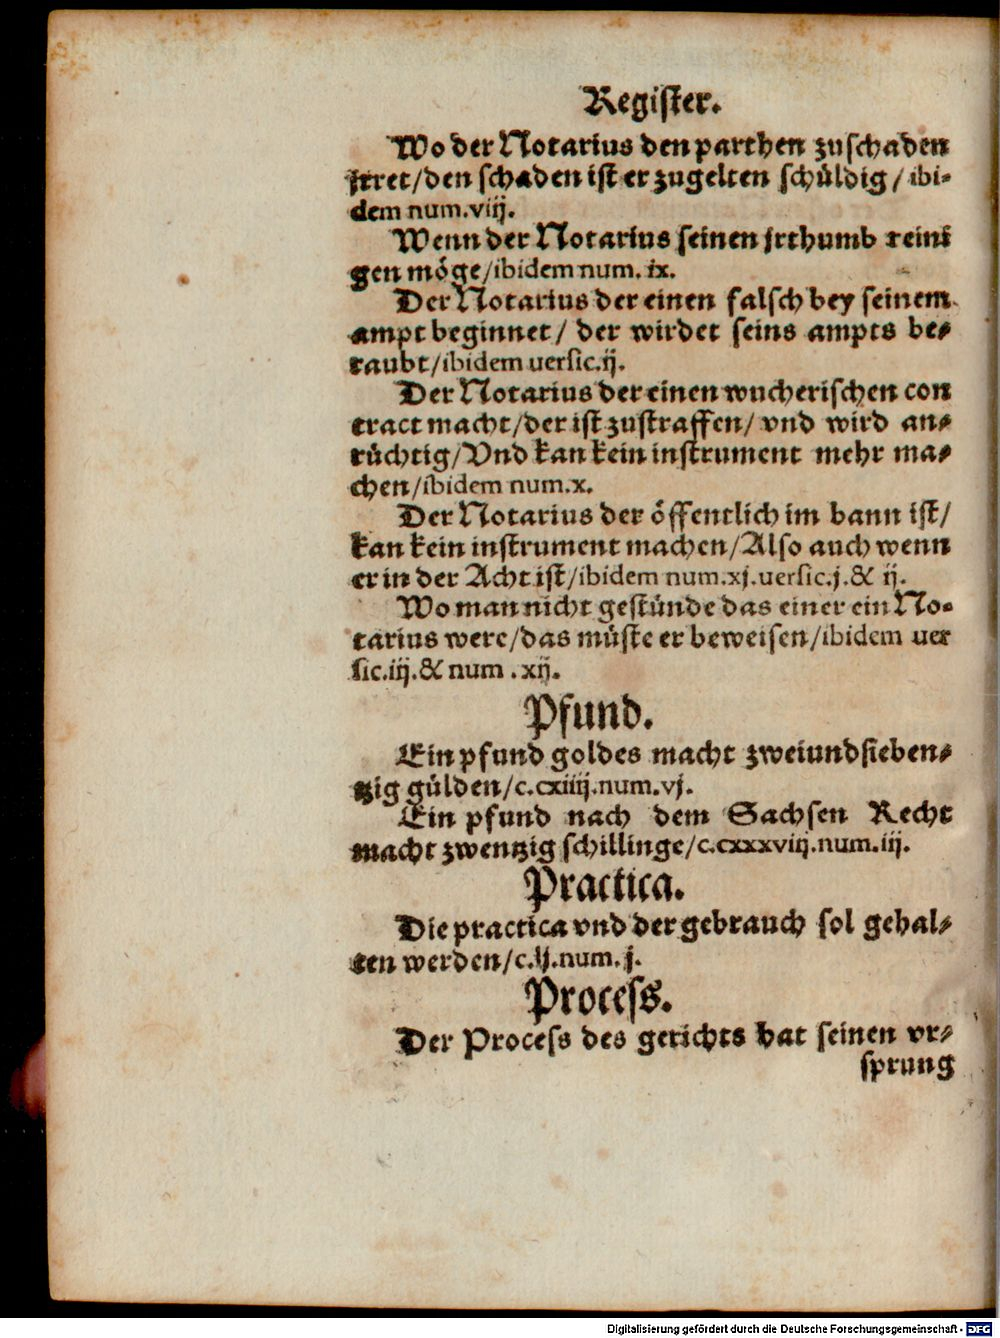 Register.
Wo der Notarius den parthen zu schaden
jrret/den schaden ist er zugelten schüldig/ ibi-
dem num.viij.
Wenn der Notarius seinen jrthumb reini
gen möge/ibidem num. ix.
Der Notarius der einen falsch bey seinem
ampt beginnet/ der wirdet seins ampts be-
raubt/ibidem uersic.ij.
Der Notarius der einen wucherischen con
tract macht/der ist zustraffen/ vnd wird an-
rüchtig/Vnd kan kein instrument mehr ma-
chen/ibidem num.x.
Der Notarius der öffentlich im bann ist/
kan kein instrument machen/Also auch wenn
er in der Acht ist/ibidem num.xj.uersic.j.& ij.
Wo man nicht gestünde das einer ein No-
tarius were/das müste er beweisen/ibidem uer
sic.iij.& num .xij.
Pfund.
Ein pfund goldes macht zweiundsieben-
tzig gülden/c.cxiiij.num.vj.
Ein pfund nach dem Sachsen Recht
macht zwentzig schillinge/c.cxxxviij.num.iij.
Practica.
Die practica vnd der gebrauch sol gehal-
ten werden/c.lj.num. j.
Process.
Der Process des gerichts hat seinen vr-
sprung
Digitalisierung gefördert durch die Deutsche Forschungsgemeinschaft - DFG